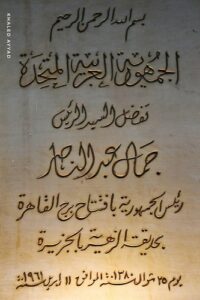 بسم الله الرحمن الرحيم
الجمهورية العربية المتحدة
تفضل السيد الرئيس
جمال عبد الناصر
رئيس الجمهورية بافتتاح برج القاهرة
بحديقة الزهرية بالجزيرة
يوم ٢٥ شوال سنة ١٣٨٠ الموافق ١١ ابريل سنة ١٩٦١
KHALED AYYAD